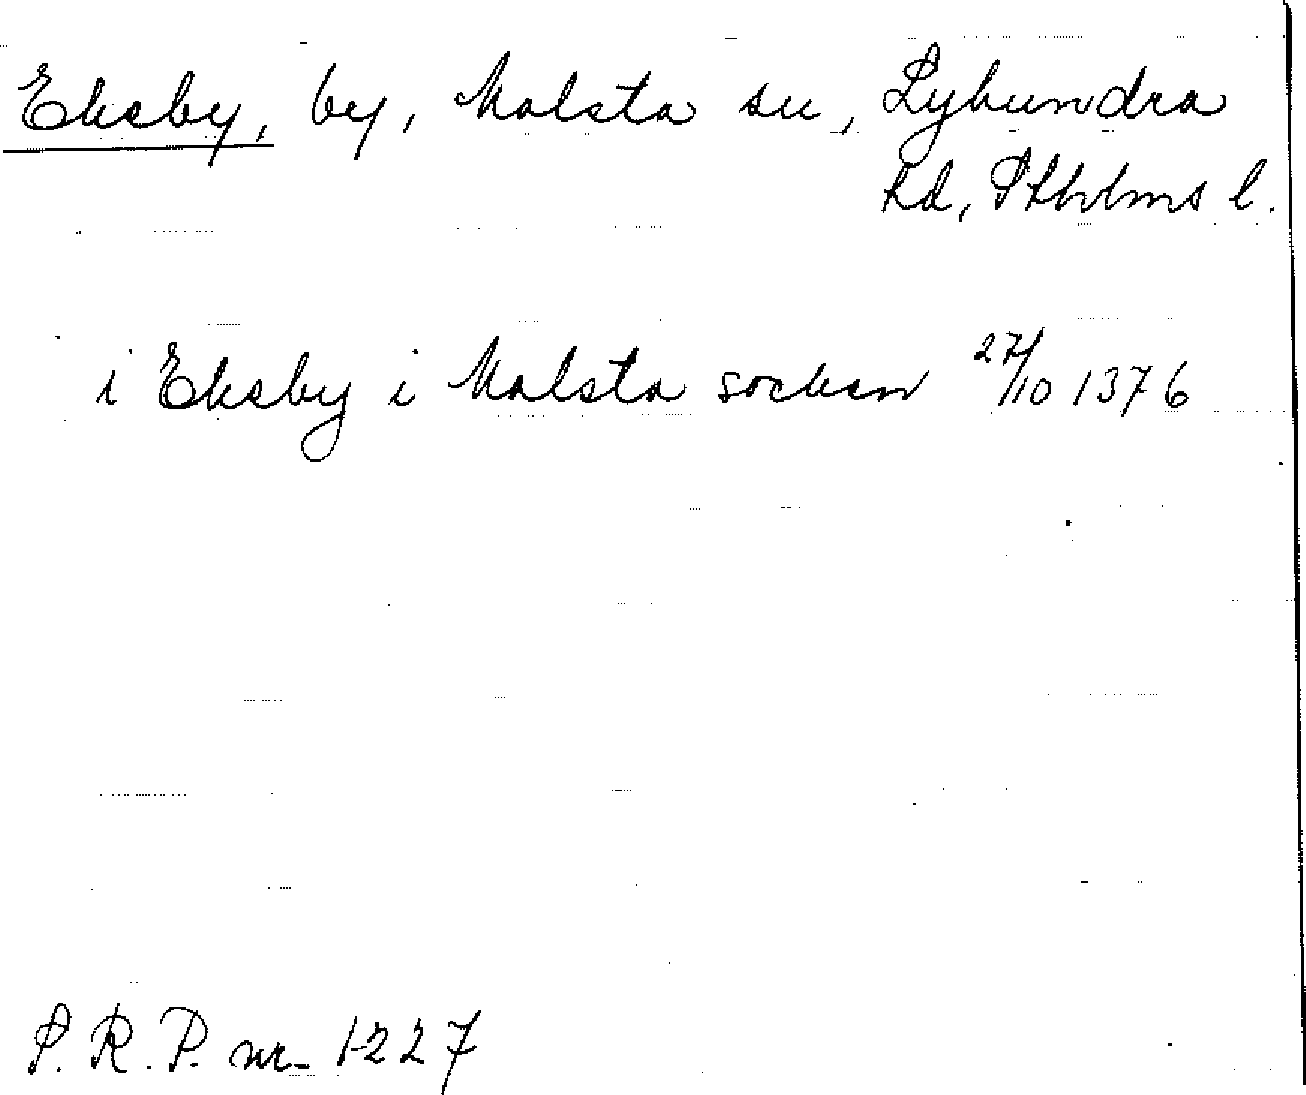 Eksby, by, Malsta sn, Lyhundra
hd, Sthlms l.
i Eksby i Malsta socken 27/10 1376
S.R.P. nr 1227